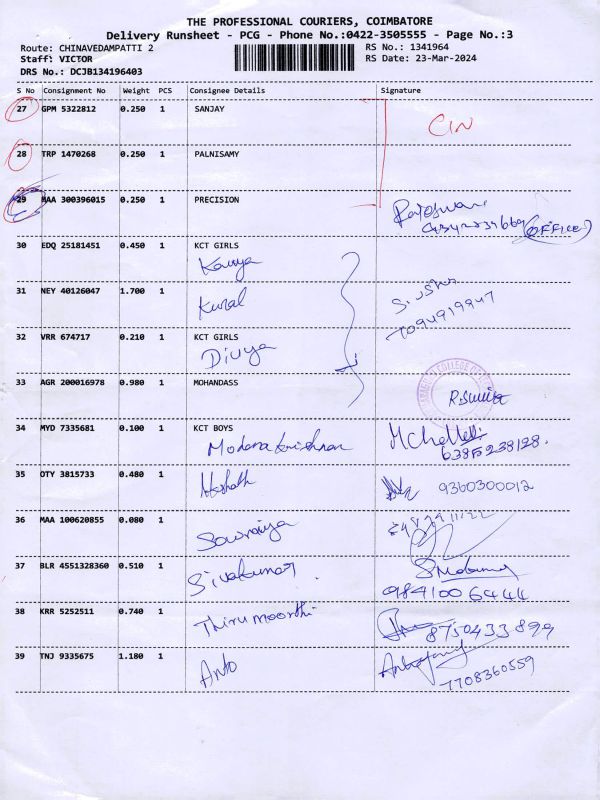 THE PROFESSIONAL COURIERS, COIMBATORE
Delivery Runsheet - PCG - Phone No.:0422-3505555 - Page No.:3
Route: CHINAVEDAMPATTI 2
Staff: VICTOR
DRS No.: DCJB134196403
RS No.: 1341964
RS Date: 23-Mar-2024
S No Consignment No Weight PCS Consignee Details Signature
27 GPM 5322812 0.250 1 SANJAY
CIN
28 TRP 1470268 0.250 1 PALNISAMY
29 MAA 300396015 0.250 1 PRECISION
(OFFICE)
30 EDQ 25181451 0.450 1 KCT GIRLS
Kavya
31 NEY 40126047 1.700 1
Kural
7094919947
32 VRR 674717 0.210 1 KCT GIRLS
Divya
33 AGR 200016978 0.980 1 MOHANDASS
34 MYD 7335681 0.100 1 KCT BOYS
6385238128.
35 OTY 3815733 0.480 1
9360300012
36 MAA 100620855 0.080 1
37 BLR 4551328360 0.510 1
Sivakumar
9841006444
38 KRR 5252511 0.740 1
Thirumoorthi
8750433899
39 TNJ 9335675 1.180 1
Anto
7708360559